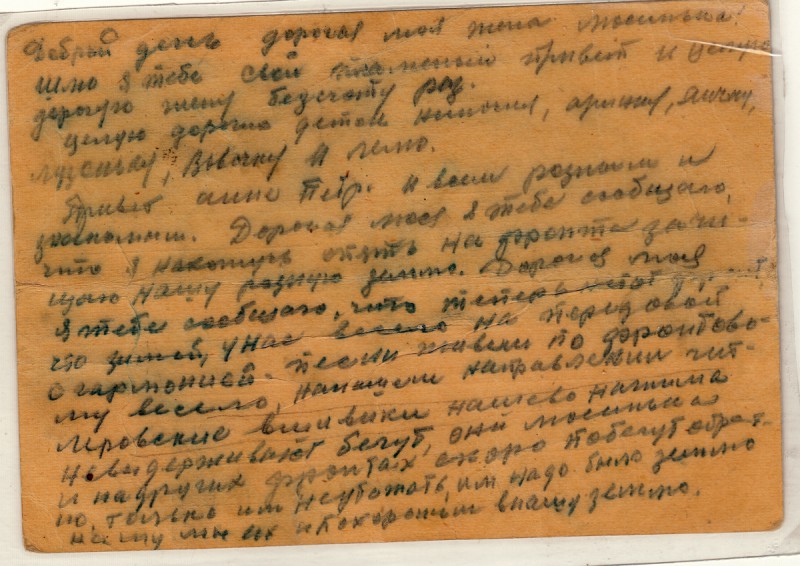 Добрый день дорогая моя жена Мосинька!
Шлю я тебе свой пламеный привет и
дорогую жену безсчоту раз.
целую дорогих деток Ниночку,
Вовочку и Лёню.
Привет Анне Петр. и всем родным и
знакомым. Дорогая Мося я тебе сообщаю,
что я нахожусь опять на фронте защи-
щаю нашу родную землю. Дорогая моя
я тебе сообщаю, что теперь
что зимой, у нас весело на передовой
с гармошкой. песни по фронтово-
му весело, на нашем направлении гит-
леровские вшивики нашево нажима
невыдерживают бегут, они Мосинька
и на других фронтах скоро побегут обрат-
но, только им неубежать, им надо было землю
нашу мы их и похороним внашу землю.